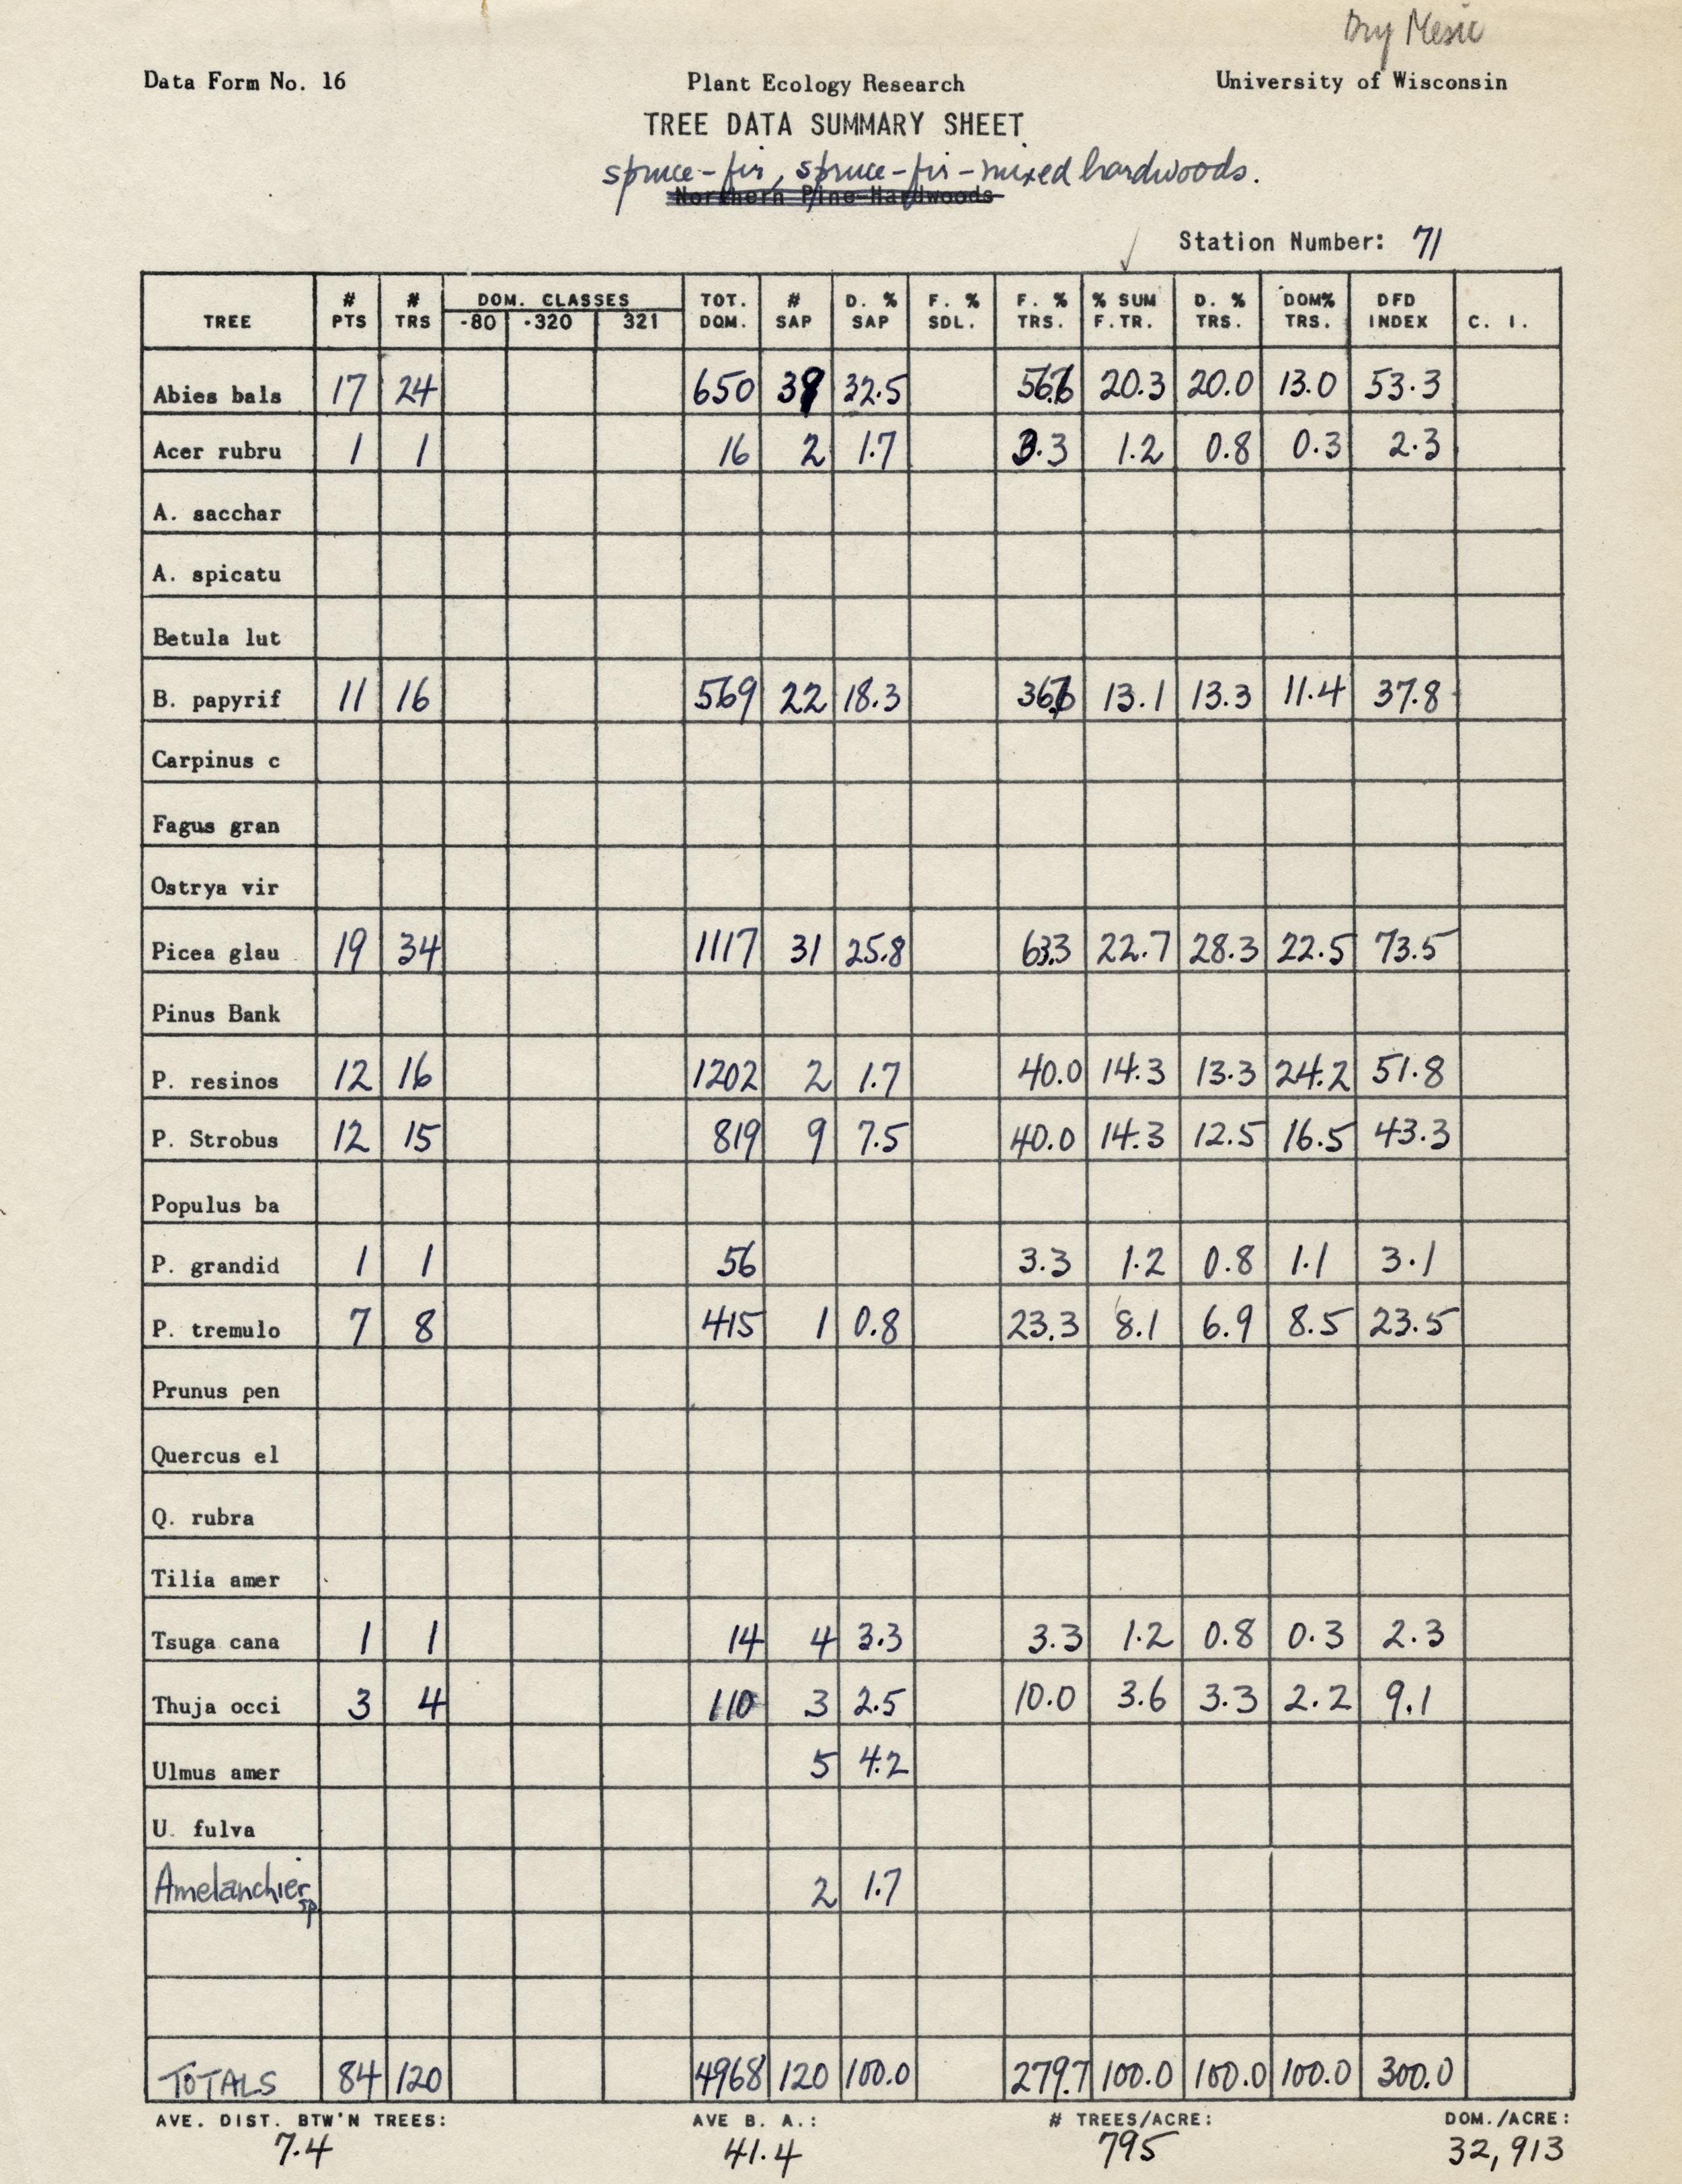 Dry Mesic
Data Form No. 16 Plant Ecology Research University of Wisconsin
TREE DATA SUMMARY SHEET
spruce-fir, spruce-fir-mixed hardwoods.
Northern Pine-Hardwoods
Station Number: 71
TREE # PTS # TRS DOM. CLASSES -80 -320 321 TOT. DOM. # SAP D. % SAP F. % SDL. F. % TRS. % SUM F. TR. D. % TRS. DOM% TRS. DFD INDEX C. I.
Abies bals 17 24 650 39 32.5 56.6 20.3 20.0 13.0 53.3
Acer rubru 1 1 16 2 1.7 3.3 1.2 0.8 0.3 2.3
A. sacchar
A. spicatu
Betula lut
B. papyrif 11 16 569 22 18.3 36.6 13.1 13.3 11.4 37.8
Carpinus c
Fagus gran
Ostrya vir
Picea glau 19 34 1117 31 25.8 63.3 22.7 28.3 22.5 73.5
Pinus Bank
P. resinos 12 16 1202 2 1.7 40.0 14.3 13.3 24.2 51.8
P. Strobus 12 15 819 9 7.5 40.0 14.3 12.5 16.5 43.3
Populus ba
P. grandid 1 1 56 3.3 1.2 0.8 1.1 3.1
P. tremulo 7 8 415 1 0.8 23.3 8.1 6.9 8.5 23.5
Prunus pen
Quercus el
Q. rubra
Tilia amer
Tsuga cana 1 1 14 4 3.3 3.3 1.2 0.8 0.3 2.3
Thuja occi 3 4 110 3 2.5 10.0 3.6 3.3 2.2 9.1
Ulmus amer 5 4.2
U. fulva
Amelanchier sp. 2 1.7
TOTALS 84 120 4968 120 100.0 279.7 100.0 100.0 100.0 300.0
AVE. DIST. BTW'N TREES: AVE B. A.: # TREES/ACRE: DOM./ACRE:
7.4 41.4 795 32,913